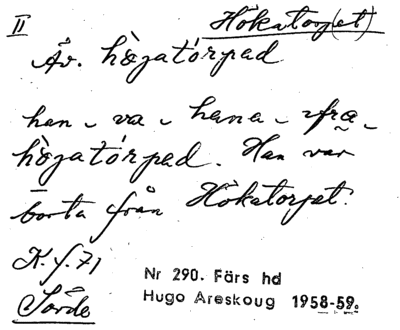 II
Hökatorp(et)
Äv. högatórpad
han va hana frå
högatórpad. Han var
borta från Hökatorpet.
K. f. 71
Nr 290. Färs hd
Hugo Areskoug 1958-59.